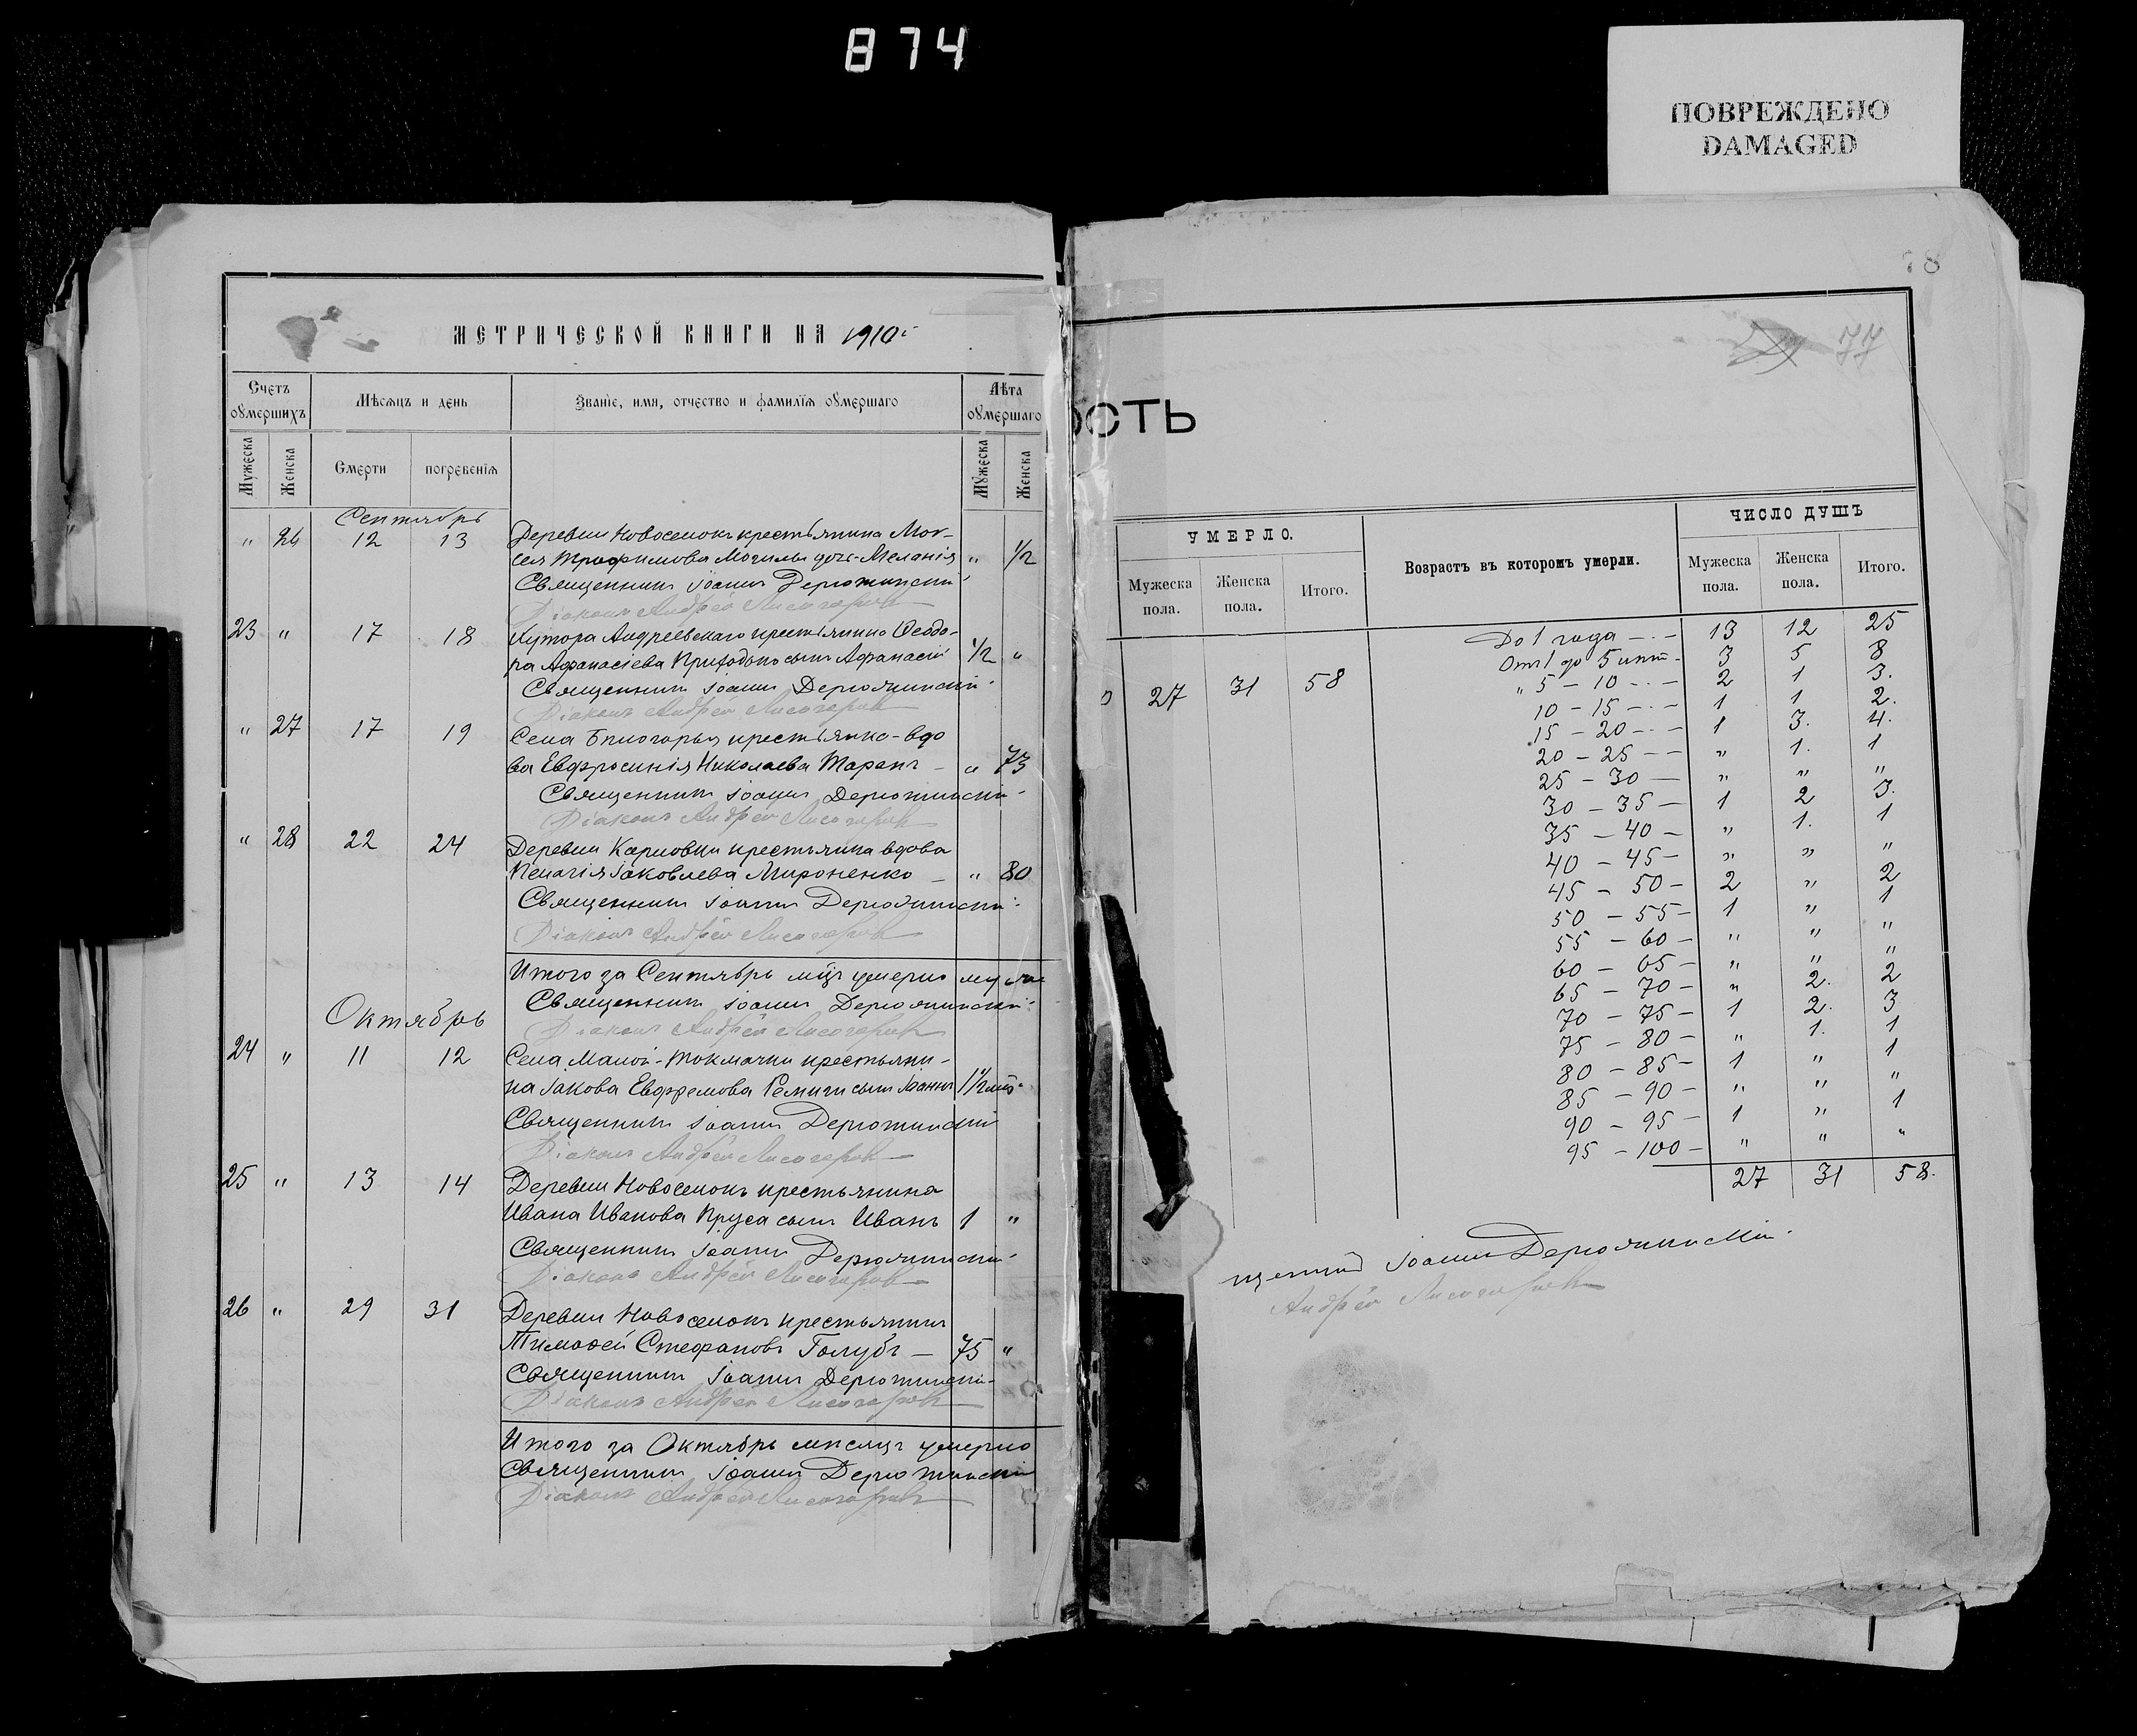 874
ПОВРЕЖДЕНО
DAMAGED
МЕТРИЧЕСКОЙ КНИГИ НА 1910 г.
Счетъ оумершихъ
Мѣсяцъ и день
Званїе, имя, отчество и фамилїя оумершаго
Лѣта оумершаго
Мужеска
Женска
Смерти
погребенїя
Мужеска
Женска
Сентябрь
" 26 12 13 Деревни Новоселокъ крестьянина Мои-
сея Трофимова Могилы дочь Меланія " 1/2
Священникъ Іоаннъ Держинскій
Діаконъ Андрей Лисогоровъ
23 " 17 18 Хутора Андреевскаго крестьянина Ѳеодо-
ра Афанасіева Приходько сынъ Афанасій 1/2 "
Священникъ Іоаннъ
Діаконъ Андрей Лисогоровъ
" 27 17 19 Села Бѣлогорья крестьянка-вдо
ва Евфросинія Николаева Таранъ – " 73
Священникъ Іоаннъ
Діаконъ Андрей Лисогоровъ
" 28 22 24 Деревни Карповки крестьянка вдова
Пелагія Іаковлева Мироненко – " 80
Священникъ Іоаннъ
Діаконъ Андрей Лисогоровъ
Итого за Сентябрь мцъ умерло
Священникъ Іоаннъ
Діаконъ Андрей Лисогоровъ
Октябрь
24 " 11 12 Села Малой-Токмачки крестьяни-
на Іакова Евфремова Ремиги сынъ Іоаннъ 1 1/2
Священникъ Іоаннъ
Діаконъ Андрей Лисогоровъ
25 " 13 14 Деревни Новоселокъ крестьянина
Ивана Иванова Пруса сынъ Иванъ 1 "
Священникъ Іоаннъ
Діаконъ Андрей Лисогоровъ
26 " 29 31 Деревни Новоселокъ крестьянинъ
Тимоѳей Стефановъ Голубъ – 75 "
Священникъ Іоаннъ
Діаконъ Андрей Лисогоровъ
Итого за Октябрь мѣсяцъ умерло
Священникъ Іоаннъ
Діаконъ Андрей Лисогоровъ
78
77
ОСТЬ
УМЕРЛО.
Возрастъ въ которомъ умерли.
ЧИСЛО ДУШЪ
Мужеска пола.
Женска пола.
Итого.
Мужеска пола.
Женска пола.
Итого.
27 31 58
До 1 года – 13 12 25
Отъ 1 до 5 лѣтъ – 3 5 8
" 5 – 10 – 2 1 3.
10 – 15 – 1 1 2.
15 – 20 – 1 3. 4.
20 – 25 – " 1. 1
25 – 30 – " " "
30 – 35 – 1 2 3.
35 – 40 – " 1. 1
40 – 45 – " " "
45 – 50 – 2 " 2
50 – 55 – 1 " 1
55 – 60 – " " "
60 – 65 – " " "
65 – 70 – " 2. 2
70 – 75 – 1 2. 3
75 – 80 – " 1. 1
80 – 85 – 1 " 1
85 – 90 – " " "
90 – 95 – 1 " 1
95 – 100 – " " "
27 31 58.
Іоаннъ
Андрей Лисогоровъ